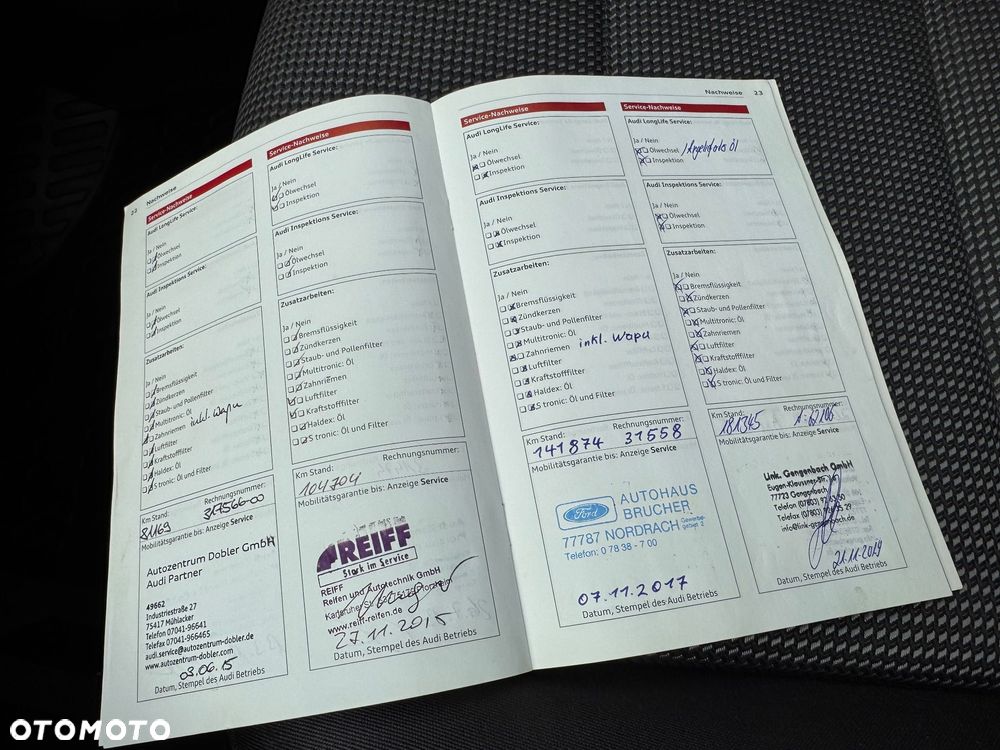 22 Nachweise
Service-Nachweise
Audi LongLife Service:
Ja / Nein
Ölwechsel
Inspektion
Audi Inspektions Service:
Ja / Nein
Ölwechsel
Inspektion
Zusatzarbeiten:
Ja / Nein
Bremsflüssigkeit
Zündkerzen
Staub- und Pollenfilter
Multitronic: Öl
Zahnriemen inkl. Wapu
Luftfilter
Kraftstofffilter
Haldex: Öl
S tronic: Öl und Filter
Km Stand: Rechnungsnummer:
81169 317566-00
Mobilitätsgarantie bis: Anzeige Service
Autozentrum Dobler GmbH
Audi Partner
49662
Industriestraße 27
75417 Mühlacker
Telefon 07041-96641
Telefax 07041-966465
audi.service@autozentrum-dobler.de
www.autozentrum-dobler.com
03.06.15
Datum, Stempel des Audi Betriebs
Service-Nachweise
Audi LongLife Service:
Ja / Nein
Ölwechsel
Inspektion
Audi Inspektions Service:
Ja / Nein
Ölwechsel
Inspektion
Zusatzarbeiten:
Ja / Nein
Bremsflüssigkeit
Zündkerzen
Staub- und Pollenfilter
Multitronic: Öl
Zahnriemen
Luftfilter
Kraftstofffilter
Haldex: Öl
S tronic: Öl und Filter
Km Stand: Rechnungsnummer:
104704
Mobilitätsgarantie bis: Anzeige Service
REIFF
Stark im Service
REIFF
Reifen und Autotechnik GmbH
www.reiff-reifen.de
27.11.2015
Datum, Stempel des Audi Betriebs
Service-Nachweise
Audi LongLife Service:
Ja / Nein
Ölwechsel
Inspektion
Audi Inspektions Service:
Ja / Nein
Ölwechsel
Inspektion
Zusatzarbeiten:
Ja / Nein
Bremsflüssigkeit
Zündkerzen
Staub- und Pollenfilter
Multitronic: Öl
Zahnriemen inkl. Wapu
Luftfilter
Kraftstofffilter
Haldex: Öl
S tronic: Öl und Filter
Km Stand: Rechnungsnummer:
141874 31558
Mobilitätsgarantie bis: Anzeige Service
Ford
AUTOHAUS
BRUCHER
77787 NORDRACH Gewerbegebiet 2
Telefon: 0 78 38 - 7 00
07.11.2017
Datum, Stempel des Audi Betriebs
Nachweise 23
Service-Nachweise
Audi LongLife Service:
Ja / Nein
Ölwechsel
Inspektion
Öl
Audi Inspektions Service:
Ja / Nein
Ölwechsel
Inspektion
Zusatzarbeiten:
Ja / Nein
Bremsflüssigkeit
Zündkerzen
Staub- und Pollenfilter
Multitronic: Öl
Zahnriemen
Luftfilter
Kraftstofffilter
Haldex: Öl
S tronic: Öl und Filter
Km Stand: Rechnungsnummer:
181345
Mobilitätsgarantie bis: Anzeige Service
Link. Gengenbach GmbH
77723 Gengenbach
Telefon (07803)
Telefax (07803)
info@link-gengenbach.de
21.11.2019
Datum, Stempel des Audi Betriebs
OTOMOTO